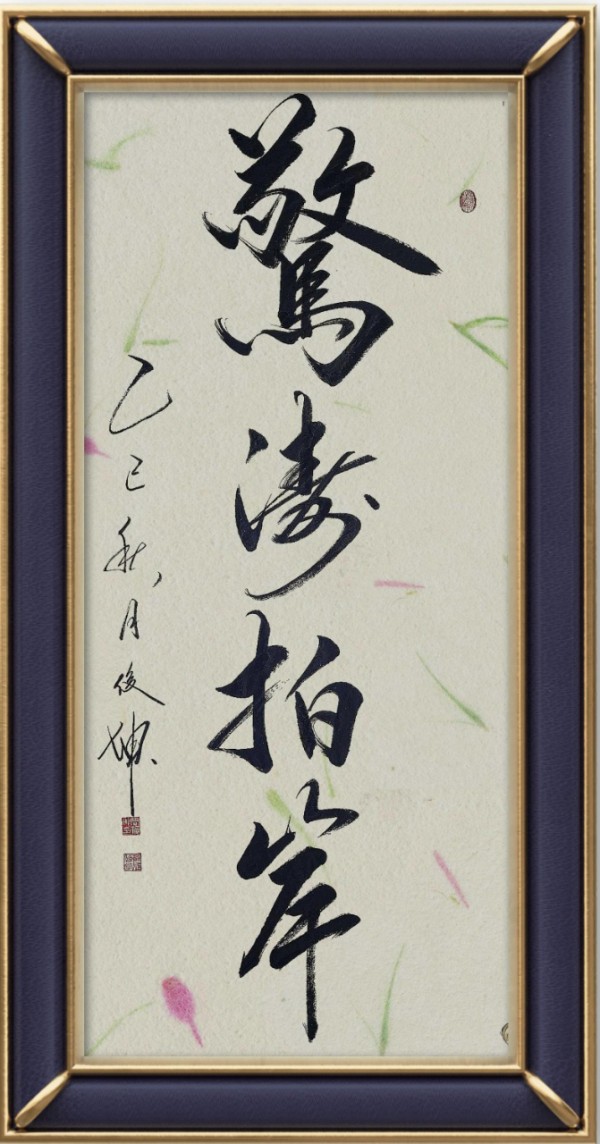 驚濤拍岸
乙巳秋月俊坤